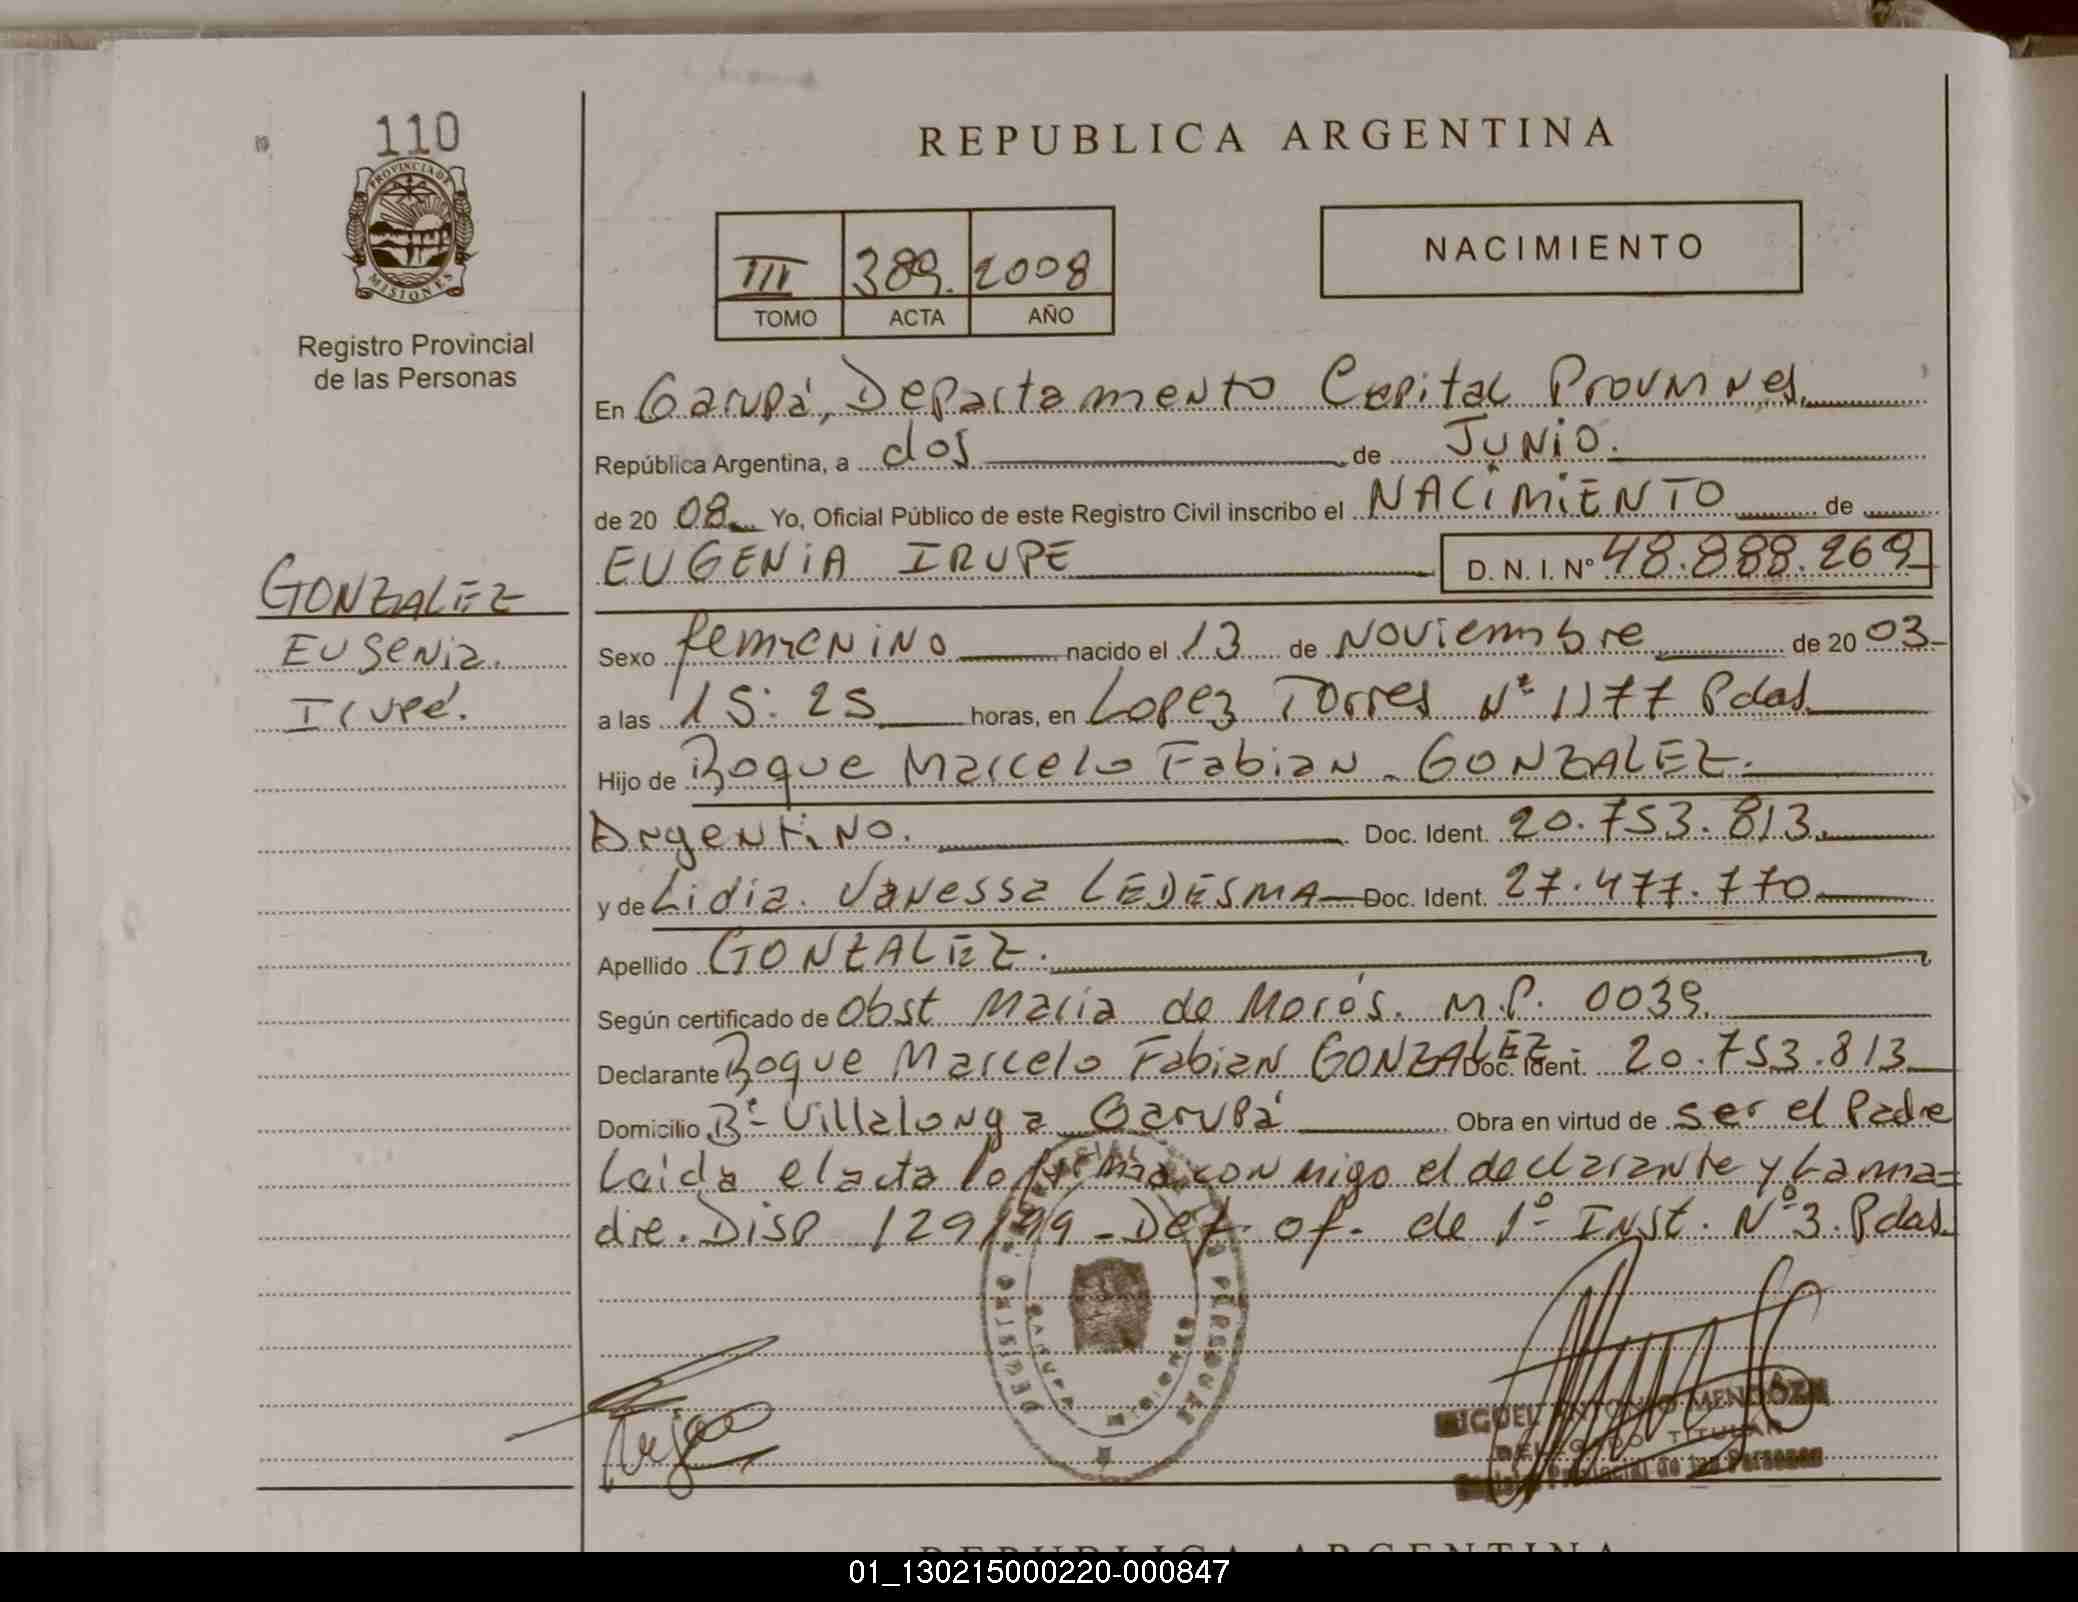 110
PROVINCIA DE
MISIONES
Registro Provincial
de las Personas
REPUBLICA ARGENTINA
III 389. 2008
TOMO ACTA AÑO
NACIMIENTO
En Garupá, Departamento Capital Prov
República Argentina, a dos de Junio.
de 20 08 Yo, Oficial Público de este Registro Civil inscribo el NACIMIENTO de
EUGENIA IRUPE D. N. I. Nº 48.888.269
GONZALEZ
Eugenia.
Irupé.
Sexo femenino nacido el 13 de Noviembre de 20 03
a las 15:25 horas, en Lopez Torres Nº 1177 Pdas.
Hijo de Roque Marcelo Fabian GONZALEZ.
Argentino. Doc. Ident. 20.753.813
y de Lidia Vanessa LEDESMA Doc. Ident. 27.477.770
Apellido GONZALEZ.
Según certificado de Obst Maria de Morós. M.P. 0039.
Declarante Roque Marcelo Fabian GONZALEZ Doc. Ident. 20.753.813
Domicilio Bº Villalonga Garupá Obra en virtud de ser el Padre
Leída el acta la firma conmigo el declarante y la ma=
dre. Disp 129/99 - Def. of. de 1º Inst. Nº 3. Pdas.
MIGUEL ANTONIO MENDOZA
DELEGADO TITULAR
Registro Provincial de las Personas
REPUBLICA ARGENTINA
01_130215000220-000847